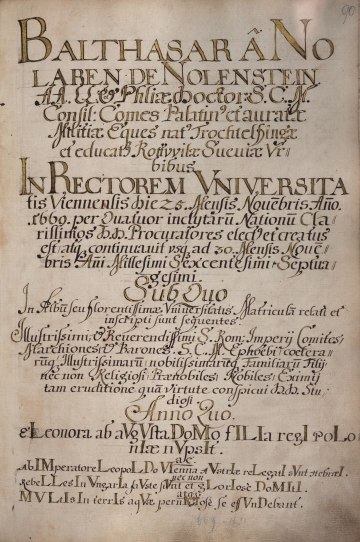 90
BALTHASAR â NO
LAREN DE NOLENSTEIN
AA. LL. & Philiæ Doctor S. C. M.
Consil: Comes Palatin9 et auratæ
Militiæ Eques nat9 Trochtelfingæ
et educat9 Rottvvilæ Sueviæ Vr-
bibus
IN RECTOREM VNIVERSITA
tis Viennensis die 25. Mensis Nouēbris Año.
1669. per Quatuor inclytarū Nationū Cla-
rissimos DD. Procuratores elect9 et creatus
est, atq continuavit vsq ad 30. Mensis Noue-
bris Añi Millesimi Sexcentesimi Septua-
gesimi
Sub Quo
In Albū seu florentissimæ Vniuersitatis Matriculā relati et
inscripti sunt sequentes.
Illustrissimi, & Reuerendissimi S. Rom: Imperij Comites,
Marchiones, & Barones. S. C. M. Ephoebi, cœtera-
rūq Illustrissimarū, nobilissimarūq Familiarū Filij
nec non Religiosi, Prænobiles, Nobiles, Eximij
tam eruditione quā Virtute conspicui DD. Stu-
diosi
Anno Quo.
eLeonora ab aVgVsta DoMo fILIa regI poLo
nIæ nVpsIt.
ac
ab IMperatore LeopoLDo VIenna aVstrIæ reLegatI sVnt Hebræi.
nec non
rebeLLes In VngarIa
atq
MVLtIs In terrIs aqVæ